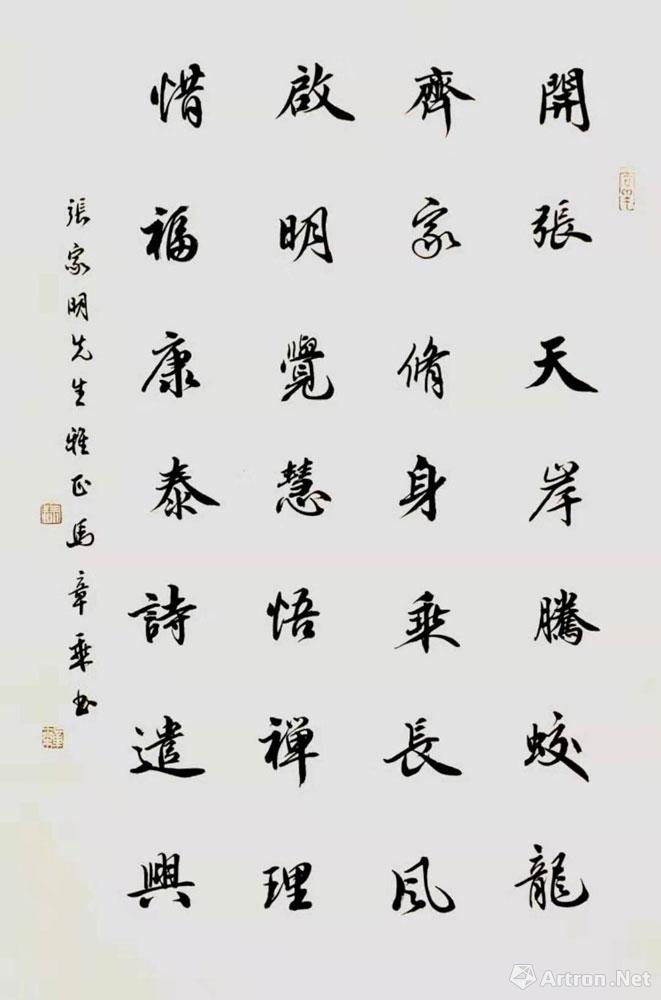 開張天岸騰蛟龍
齊家脩身乘長風
啟明覺慧悟禪理
惜福康泰詩遣興
張家明先生雅正馬章乘书
Artron.Net